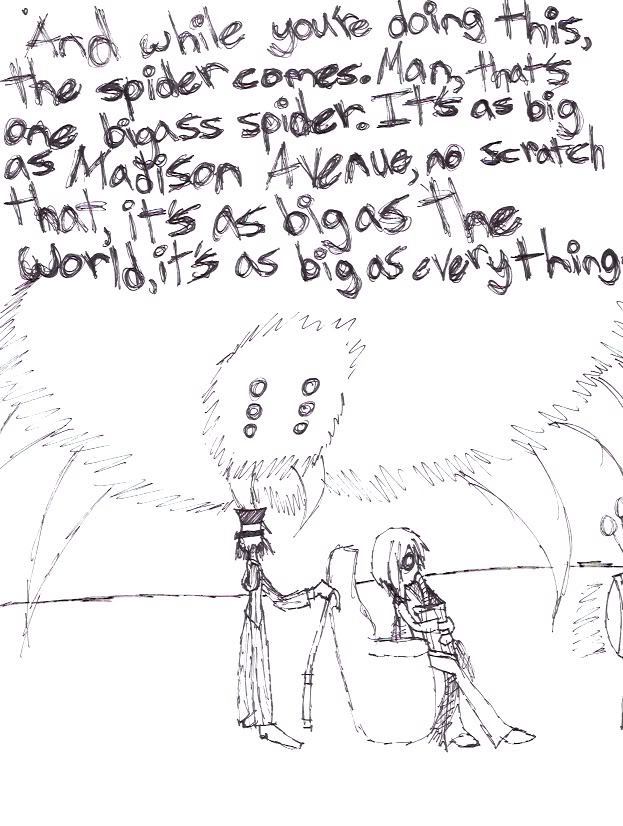 And while you're doing this,
the spider comes. Man, that's
one bigass spider. It's as big
as Madison Avenue, no scratch
that, it's as big as the
world, it's as big as everything